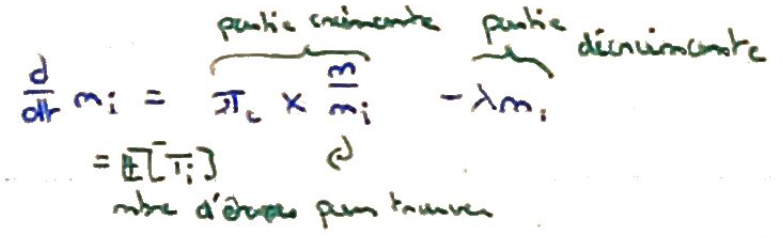 partie croissante partie décroissante
d/dt n_i = π_i × n/n_i - λn_i
= 𝔼[T_i]
nbre d'étapes pour trouver